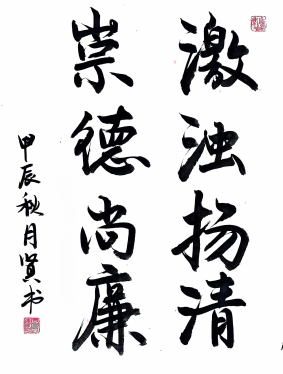 激浊扬清
崇德尚廉
甲辰秋月贤书